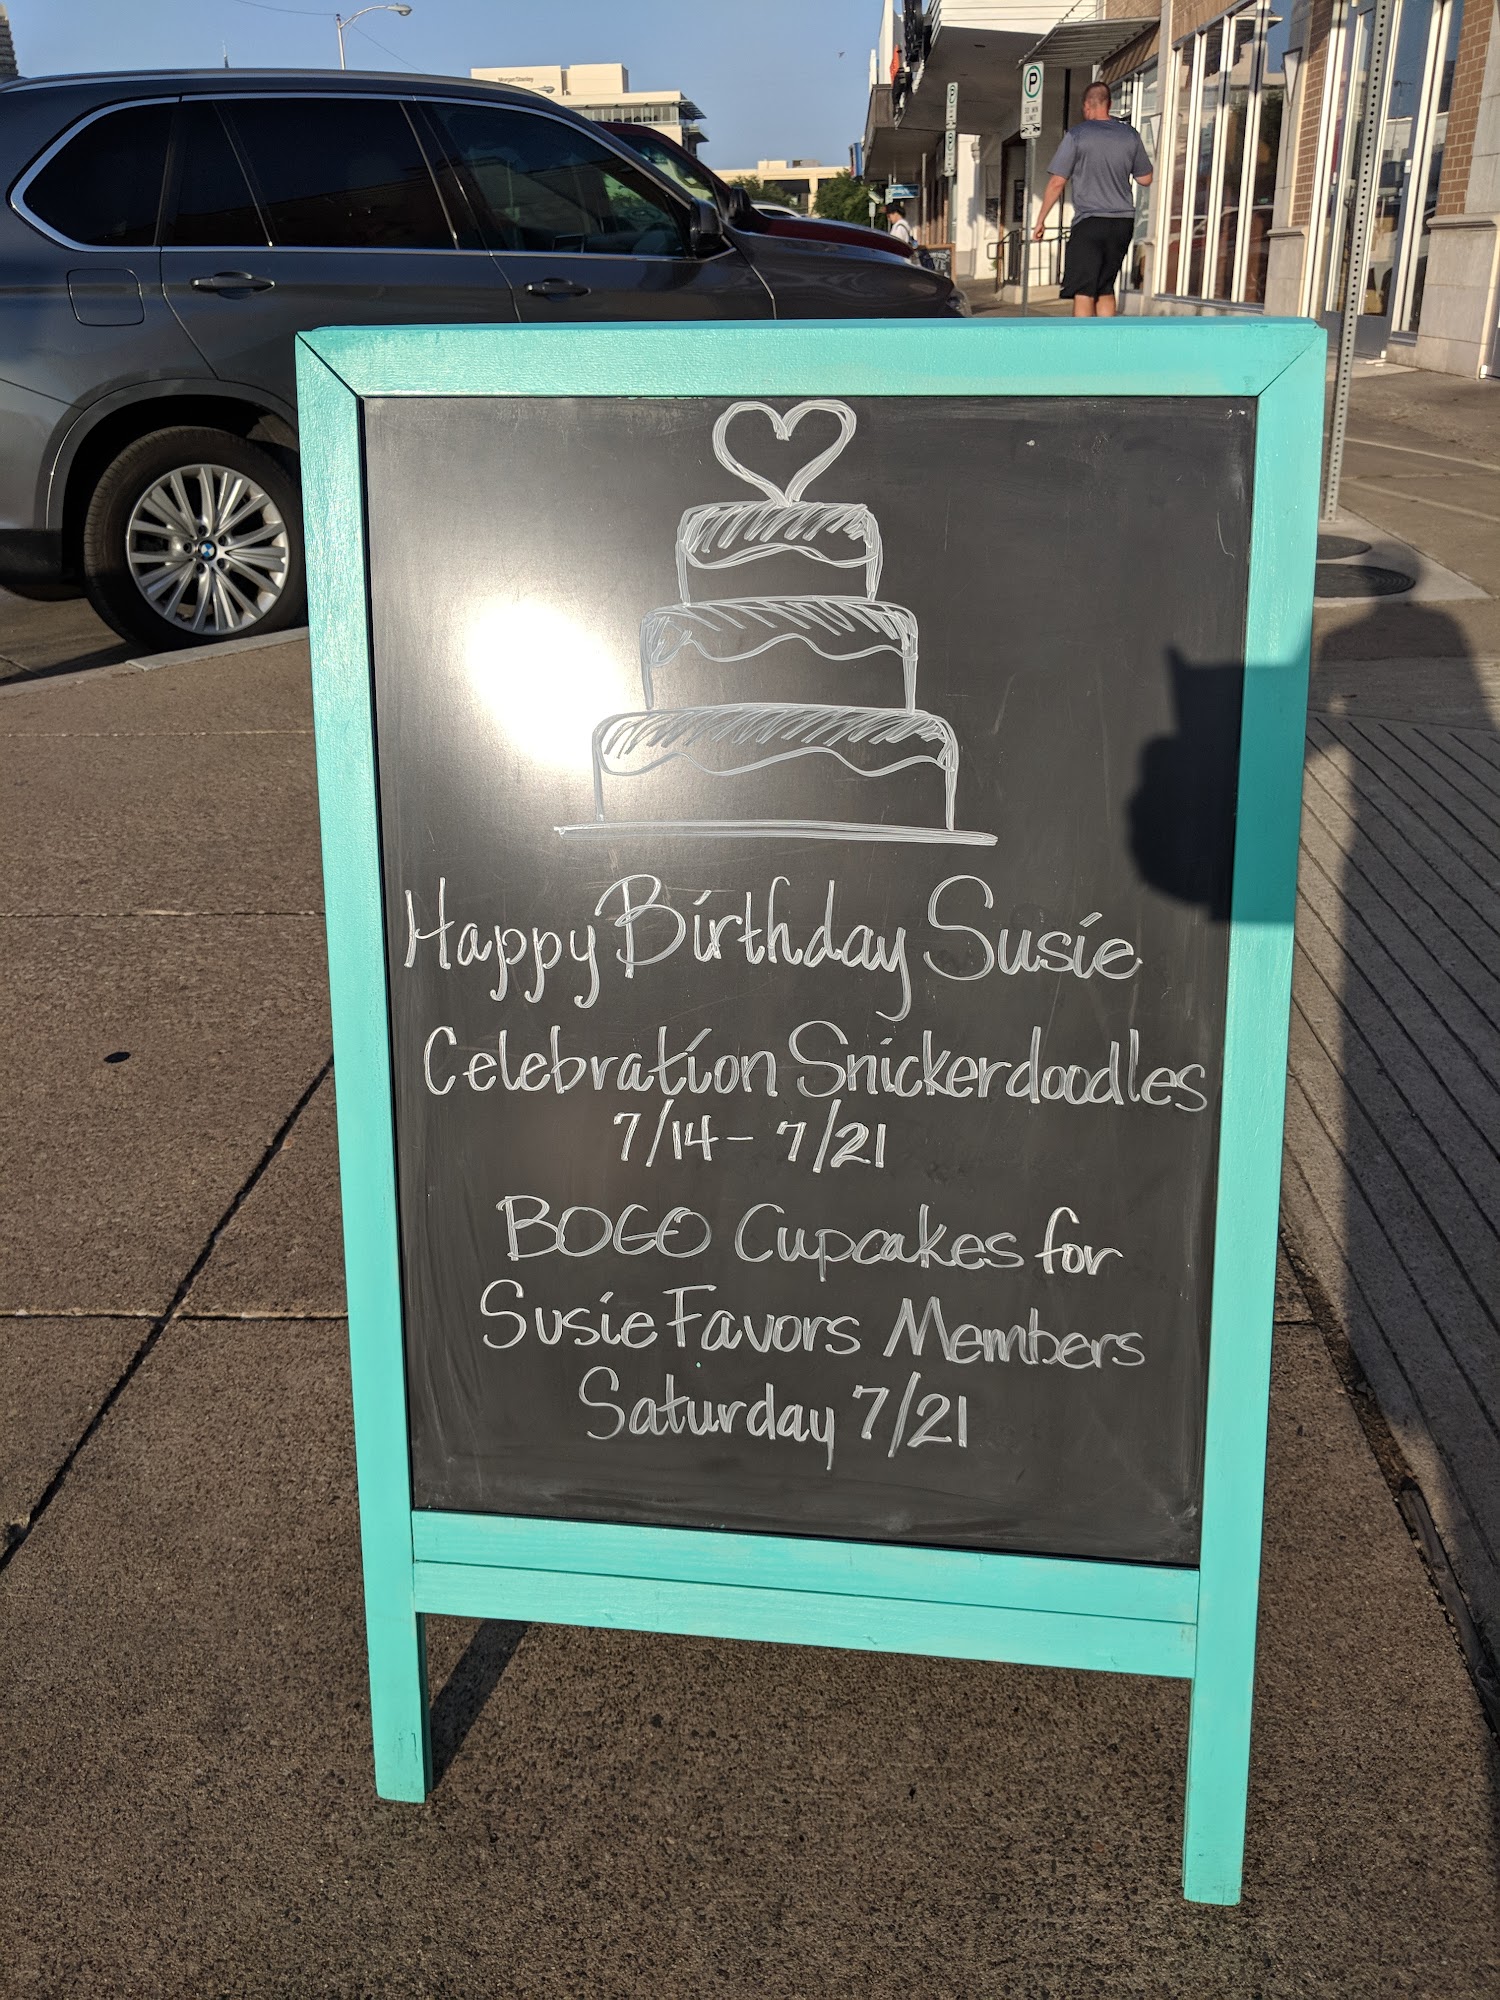 Happy Birthday Susie
Celebration Snickerdoodles
7/14 - 7/21
BOGO Cupcakes for
Susie Favors Members
Saturday 7/21
Morgan Stanley
P